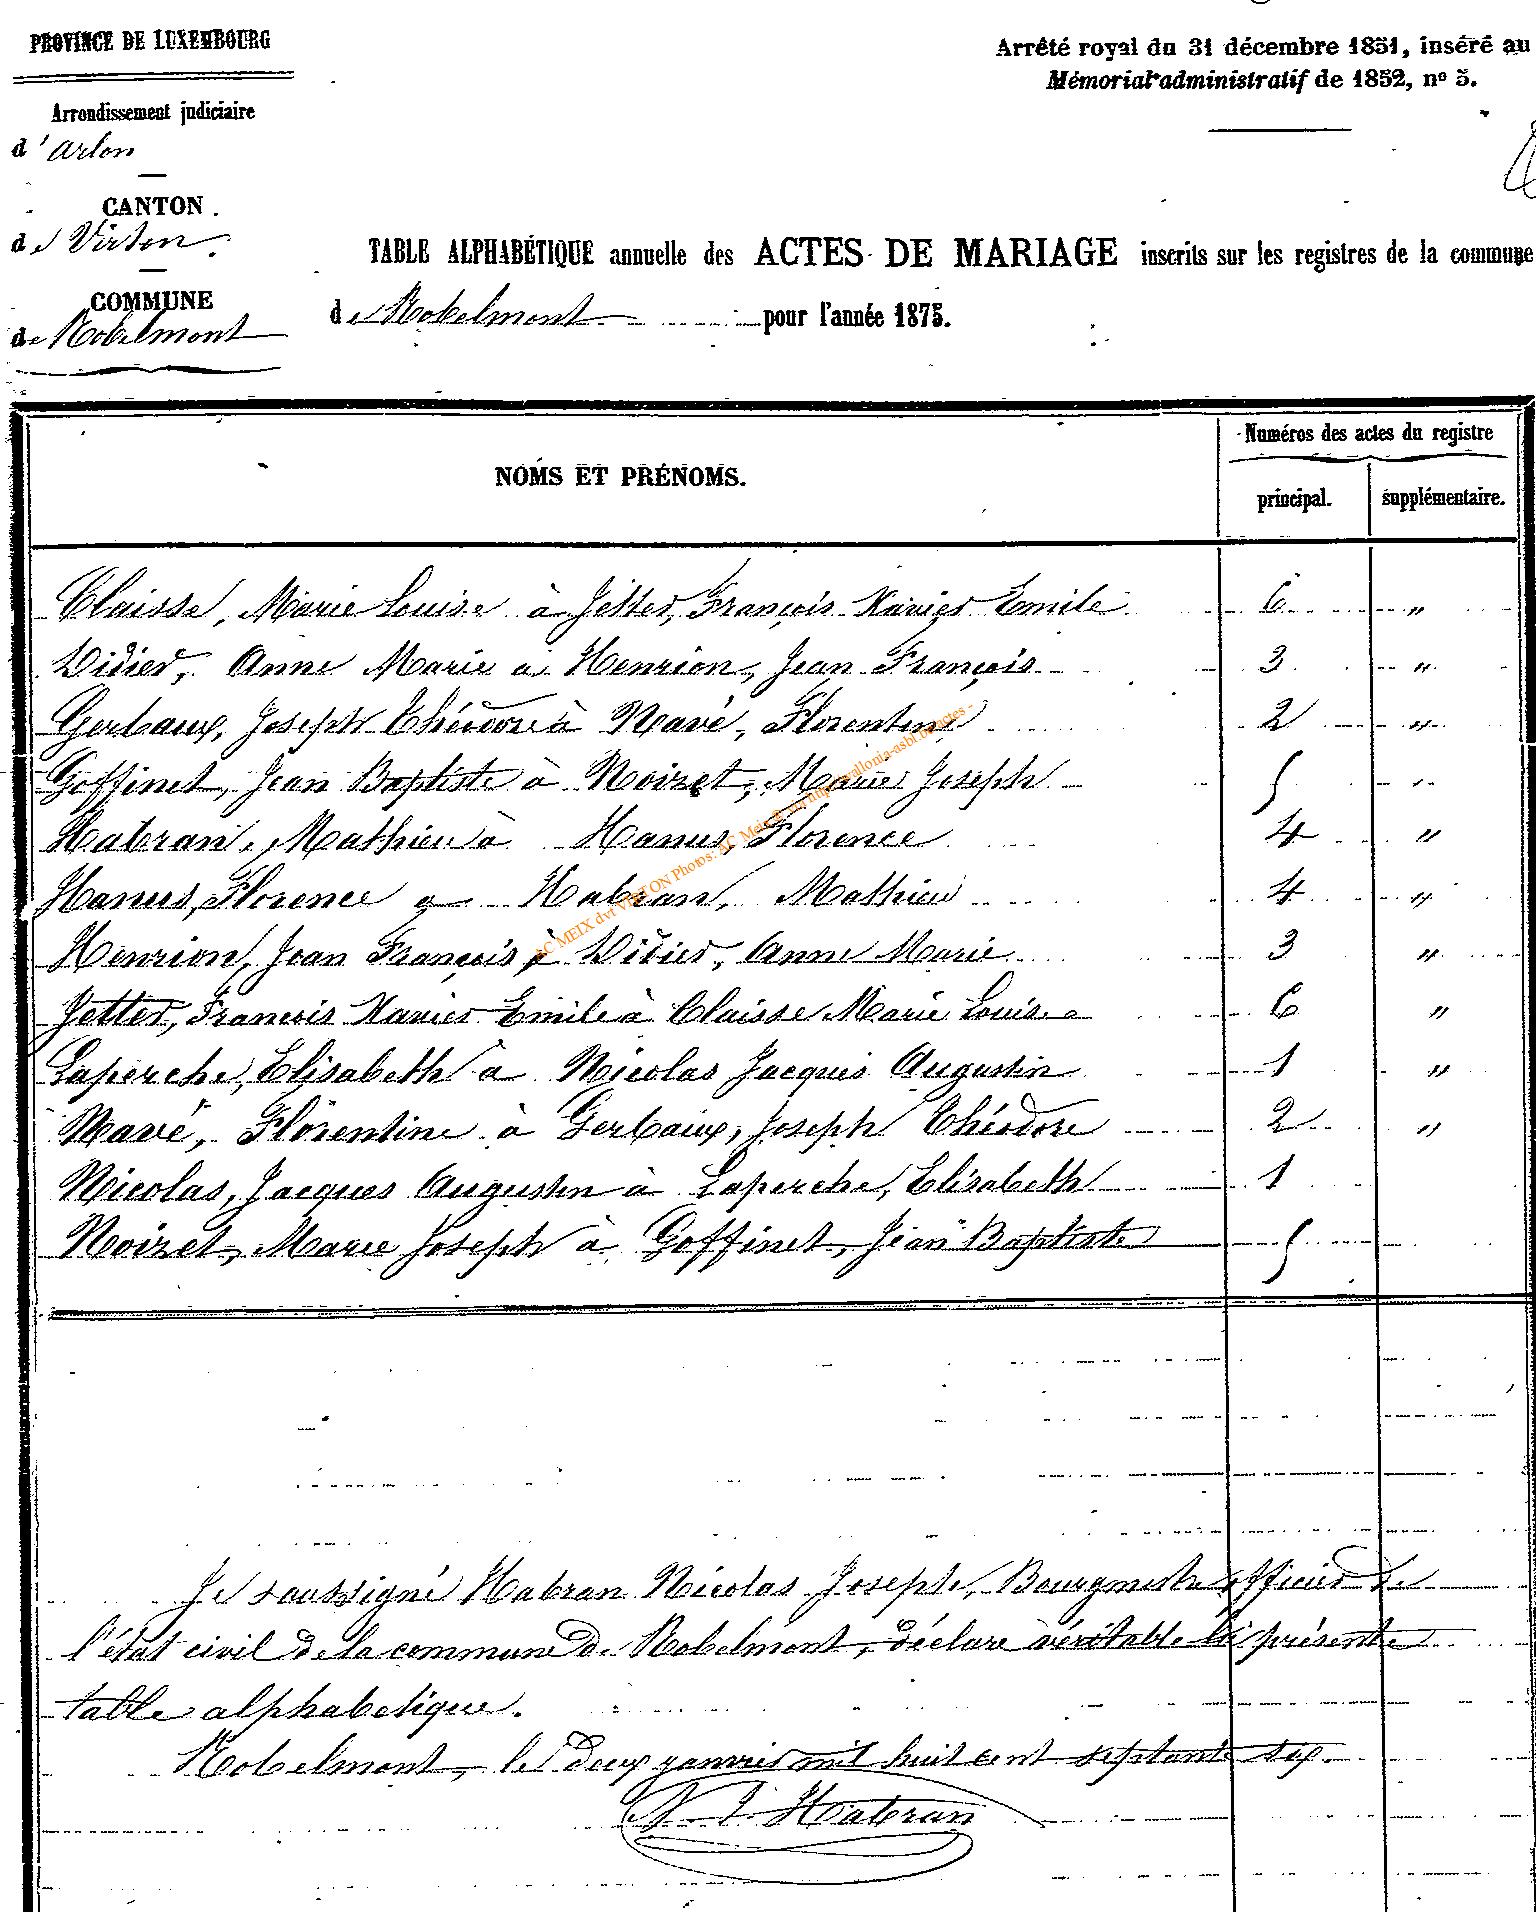 PROVINCE DE LUXEMBOURG
Arrêté royal du 31 décembre 1851, inséré au
Mémorial administratif de 1852, nº 5.
Arrondissement judiciaire
d'Arlon
CANTON
de Virton
COMMUNE
de Robelmont
TABLE ALPHABÉTIQUE annuelle des ACTES DE MARIAGE inscrits sur les registres de la commune
de Robelmont pour l'année 1875.
NOMS ET PRÉNOMS.
Numéros des actes du registre
principal.
supplémentaire.
Claisse, Marie Louise à Jetter, François Xavier Emile 6 "
Didier, Anne Marie à Henrion, Jean François 3 "
Gerbaux, Joseph Théodore à Mavé, Florentine 2 "
Goffinet, Jean Baptiste à Noizet, Marie Joseph 5 "
Habran, Mathieu à Hanus, Florence 4 "
Hanus, Florence à Habran, Mathieu 4 "
Henrion, Jean François à Didier, Anne Marie 3 "
Jetter, François Xavier Emile à Claisse Marie Louise 6 "
Laperche, Elisabeth à Nicolas Jacques Augustin 1 "
Mavé, Florentine à Gerbaux, Joseph Théodore 2 "
Nicolas, Jacques Augustin à Laperche, Elisabeth 1
Noizet, Marie Joseph à Goffinet, Jean Baptiste 5
Je soussigné Habran Nicolas Joseph, Bourgmestre officier de
l'état civil de la commune de Robelmont, déclare véritable la présente
table alphabetique.
Robelmont, le deux janvier mil huit cent septante six.
N J Habran